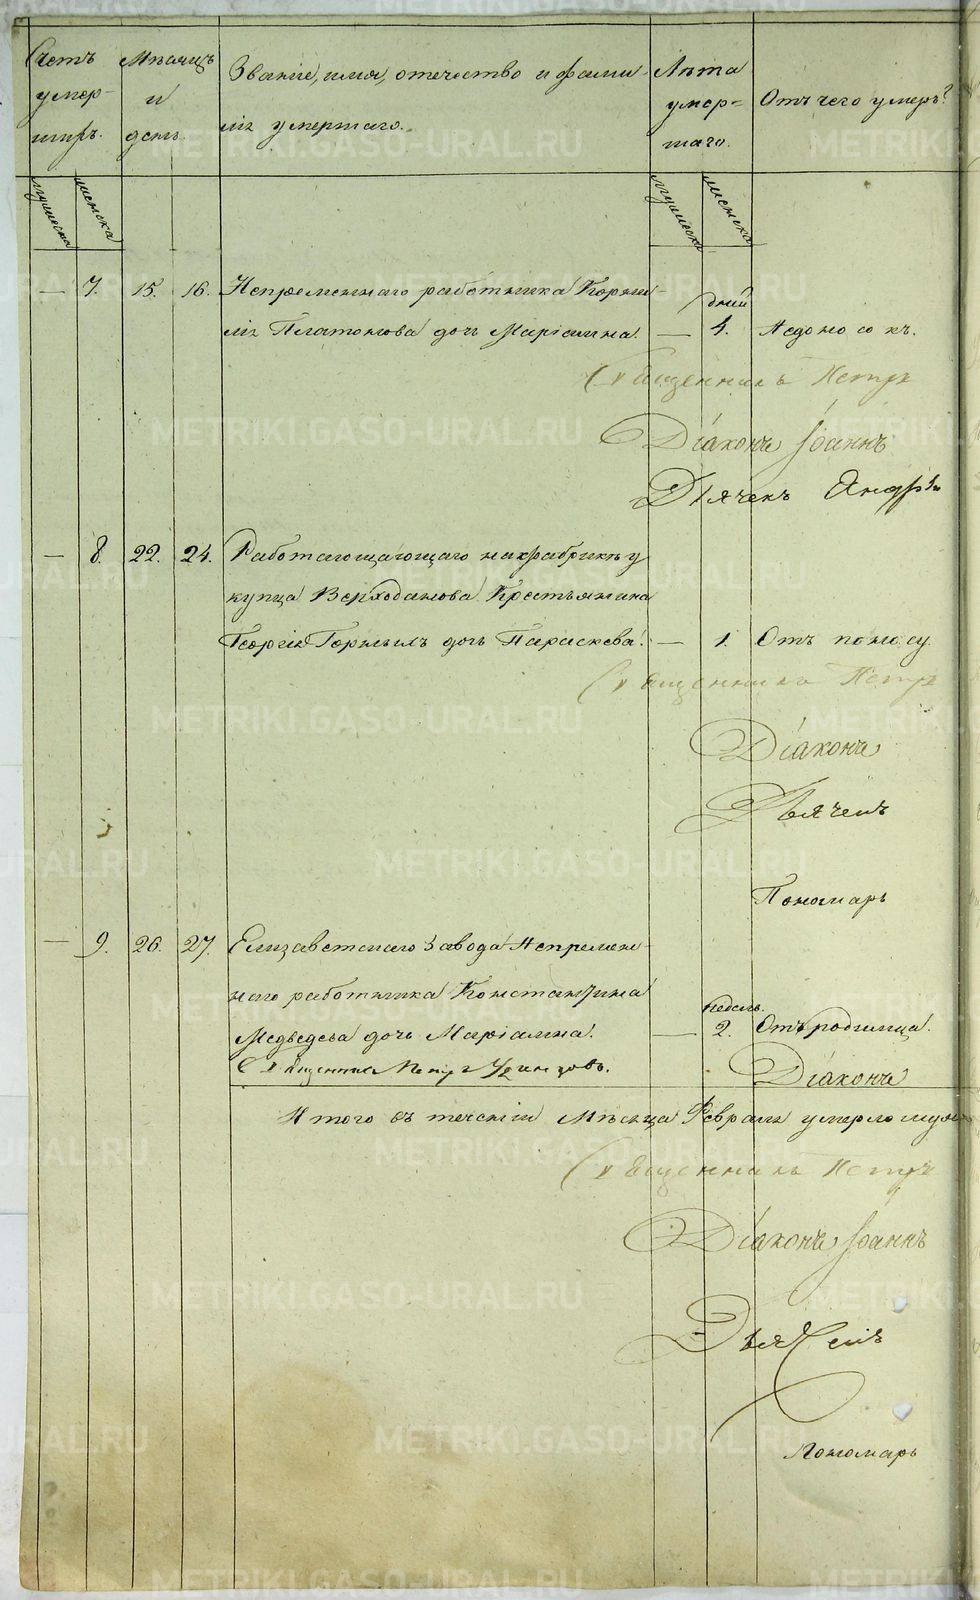 Счетъ умершихъ.
мужеска
женска
Мѣсяцъ и день.
Званіе, имя, отечество и фамилія умершаго.
Лѣта умершаго.
мужеска
женска
Отъ чего умеръ?
— 7. 15. 16. Непремѣннаго работника Корни-
лія Платонова дочь Маріамна. — дней 4. Недоноскъ.
Священникъ Петръ
Діаконъ Іоаннъ
Дьячекъ Андрей
— 8. 22. 24. Работающаго на фабрикѣ у
купца Верходанова Крестьянина
Георгія дочь Параскева. — 1. Отъ поносу.
Священникъ Петръ
Діаконъ
Дьячекъ
Пономарь
— 9. 26. 27. Елизаветскаго завода Непремѣн-
наго работника Константина
Медведева дочь Маріамна. — недѣль. 2. Отъ родимца.
Священникъ Петръ
Діаконъ
Итого въ теченіи Мѣсяца Февраля умерло муж
Священникъ Петръ
Діаконъ Іоаннъ
Дьячекъ
Пономарь
METRIKI.GASO-URAL.RU